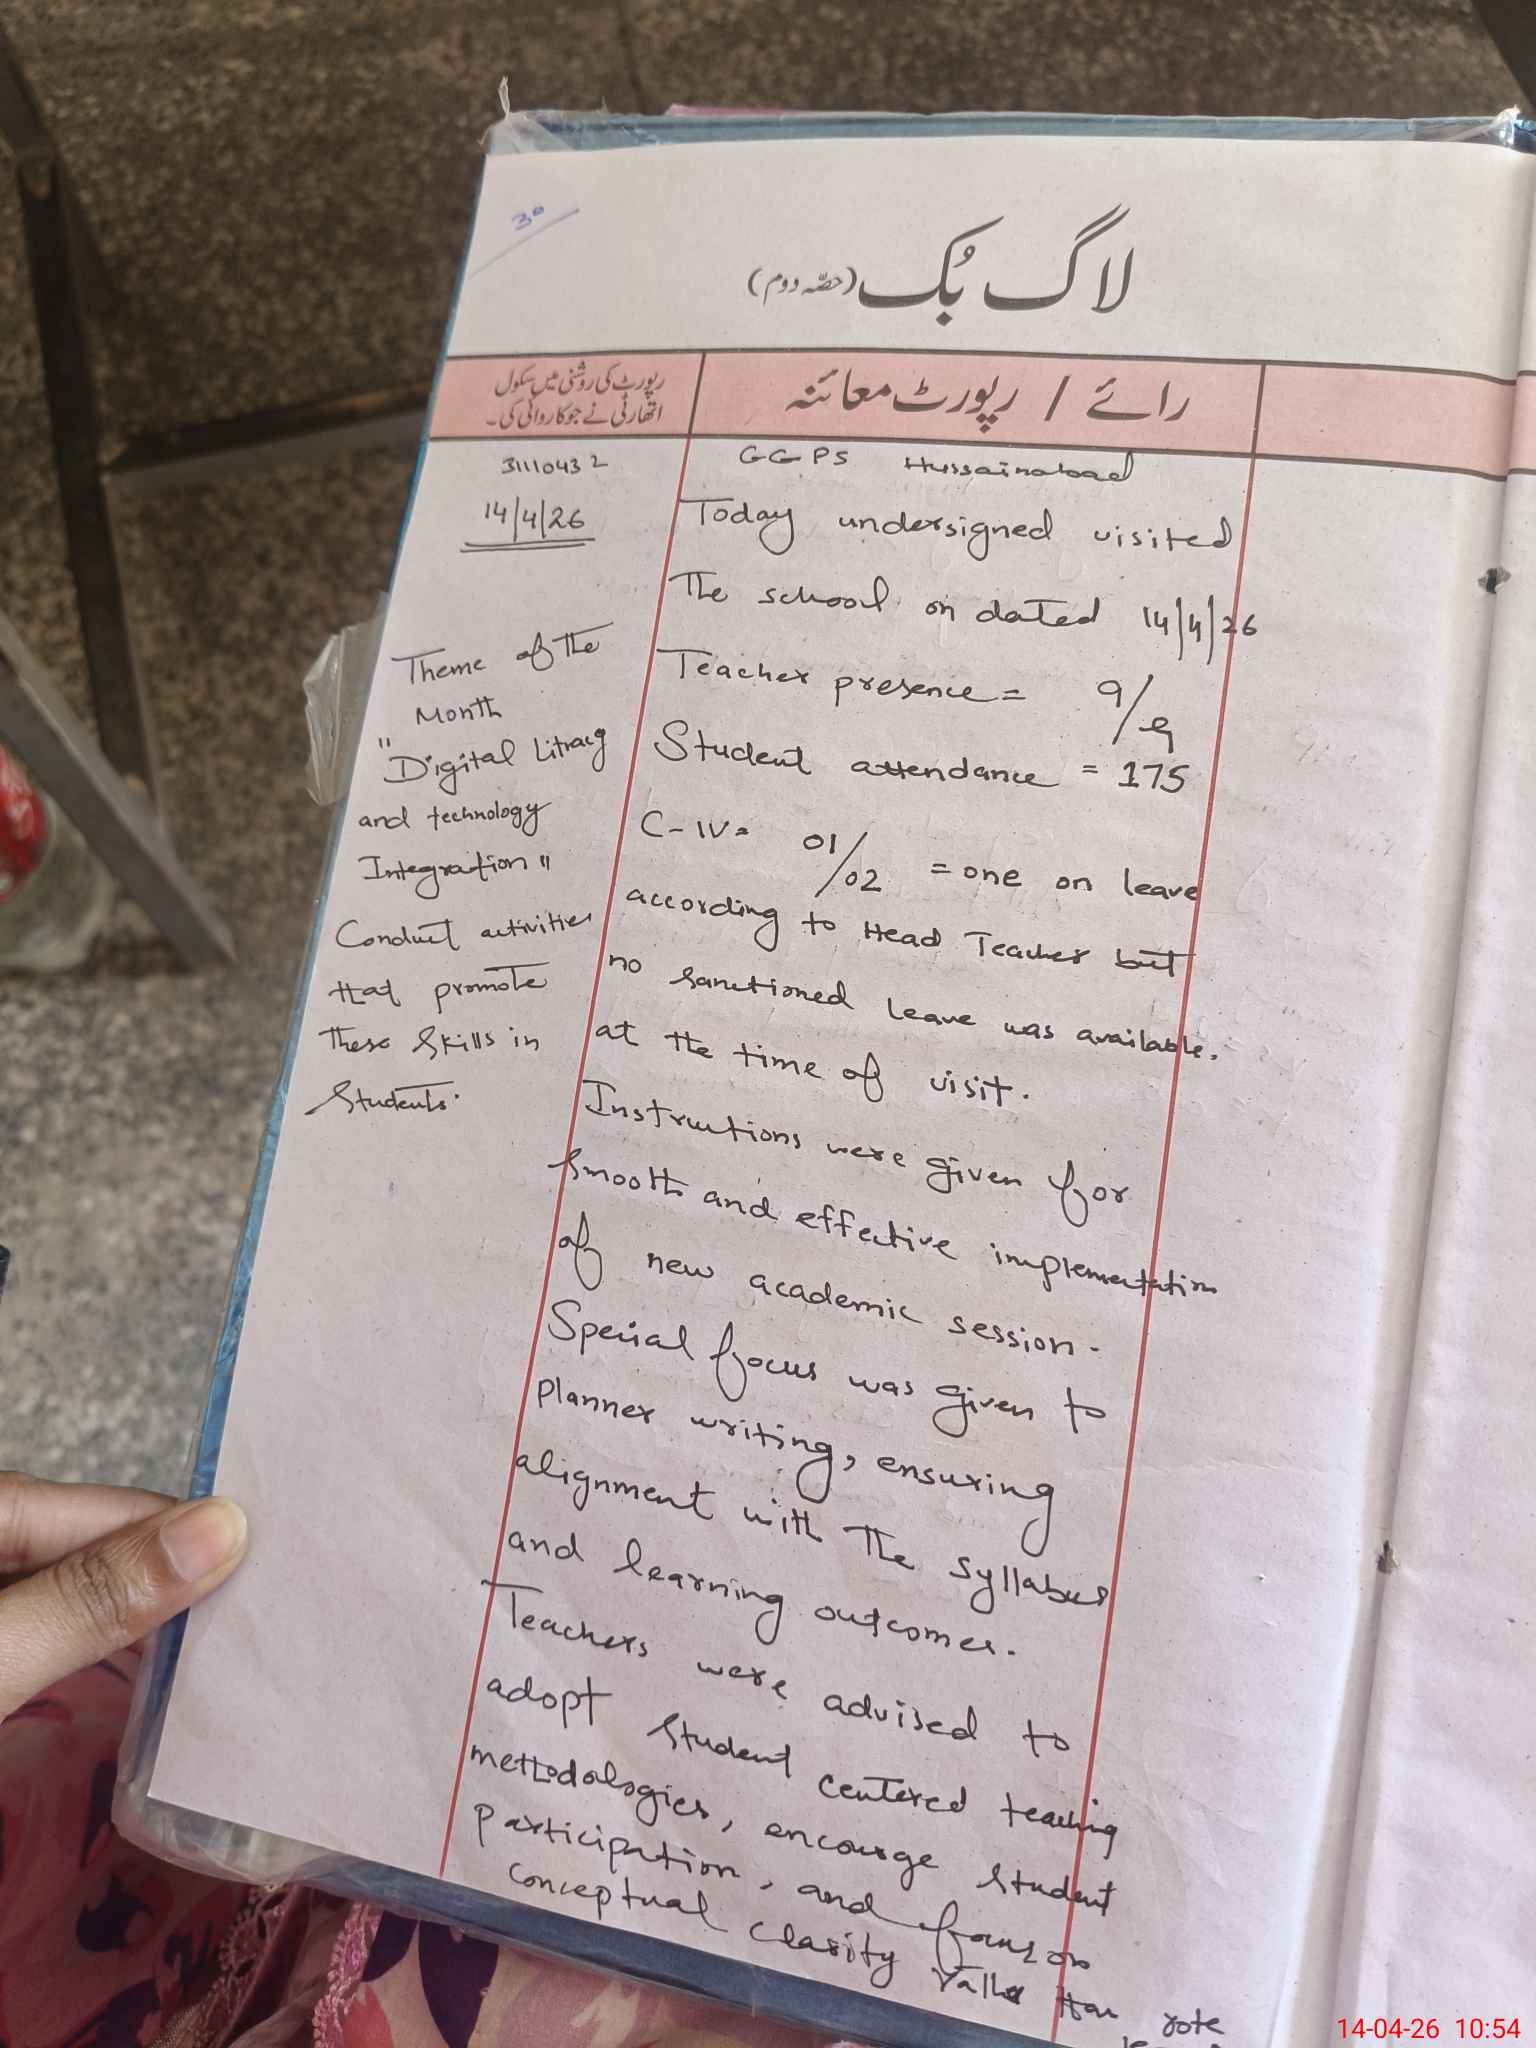 30
لاگ بُک (حصّہ دوم)
رپورٹ کی روشنی میں سکول
اتھارٹی نے جو کاروائی کی۔
رائے / رپورٹ معائنہ
31110432
14/4/26
Theme of the
Month
"Digital Litracy
and technology
Integration"
Conduct activities
that promote
these skills in
students.
GGPS Hussainabad
Today undersigned visited
The school on dated 14/4/26
Teacher presence = 9/9
Student attendance = 175
C-IV = 01/02 = one on leave
according to Head Teacher but
no sanctioned leave was available.
at the time of visit.
Instructions were given for
smooth and effective implementation
of new academic session.
Special focus was given to
planner writing, ensuring
alignment with the syllabus
and learning outcomes.
Teachers were advised to
adopt student centered teaching
methodologies, encourge student
participation, and focus on
conceptual clarity than rote
14-04-26 10:54